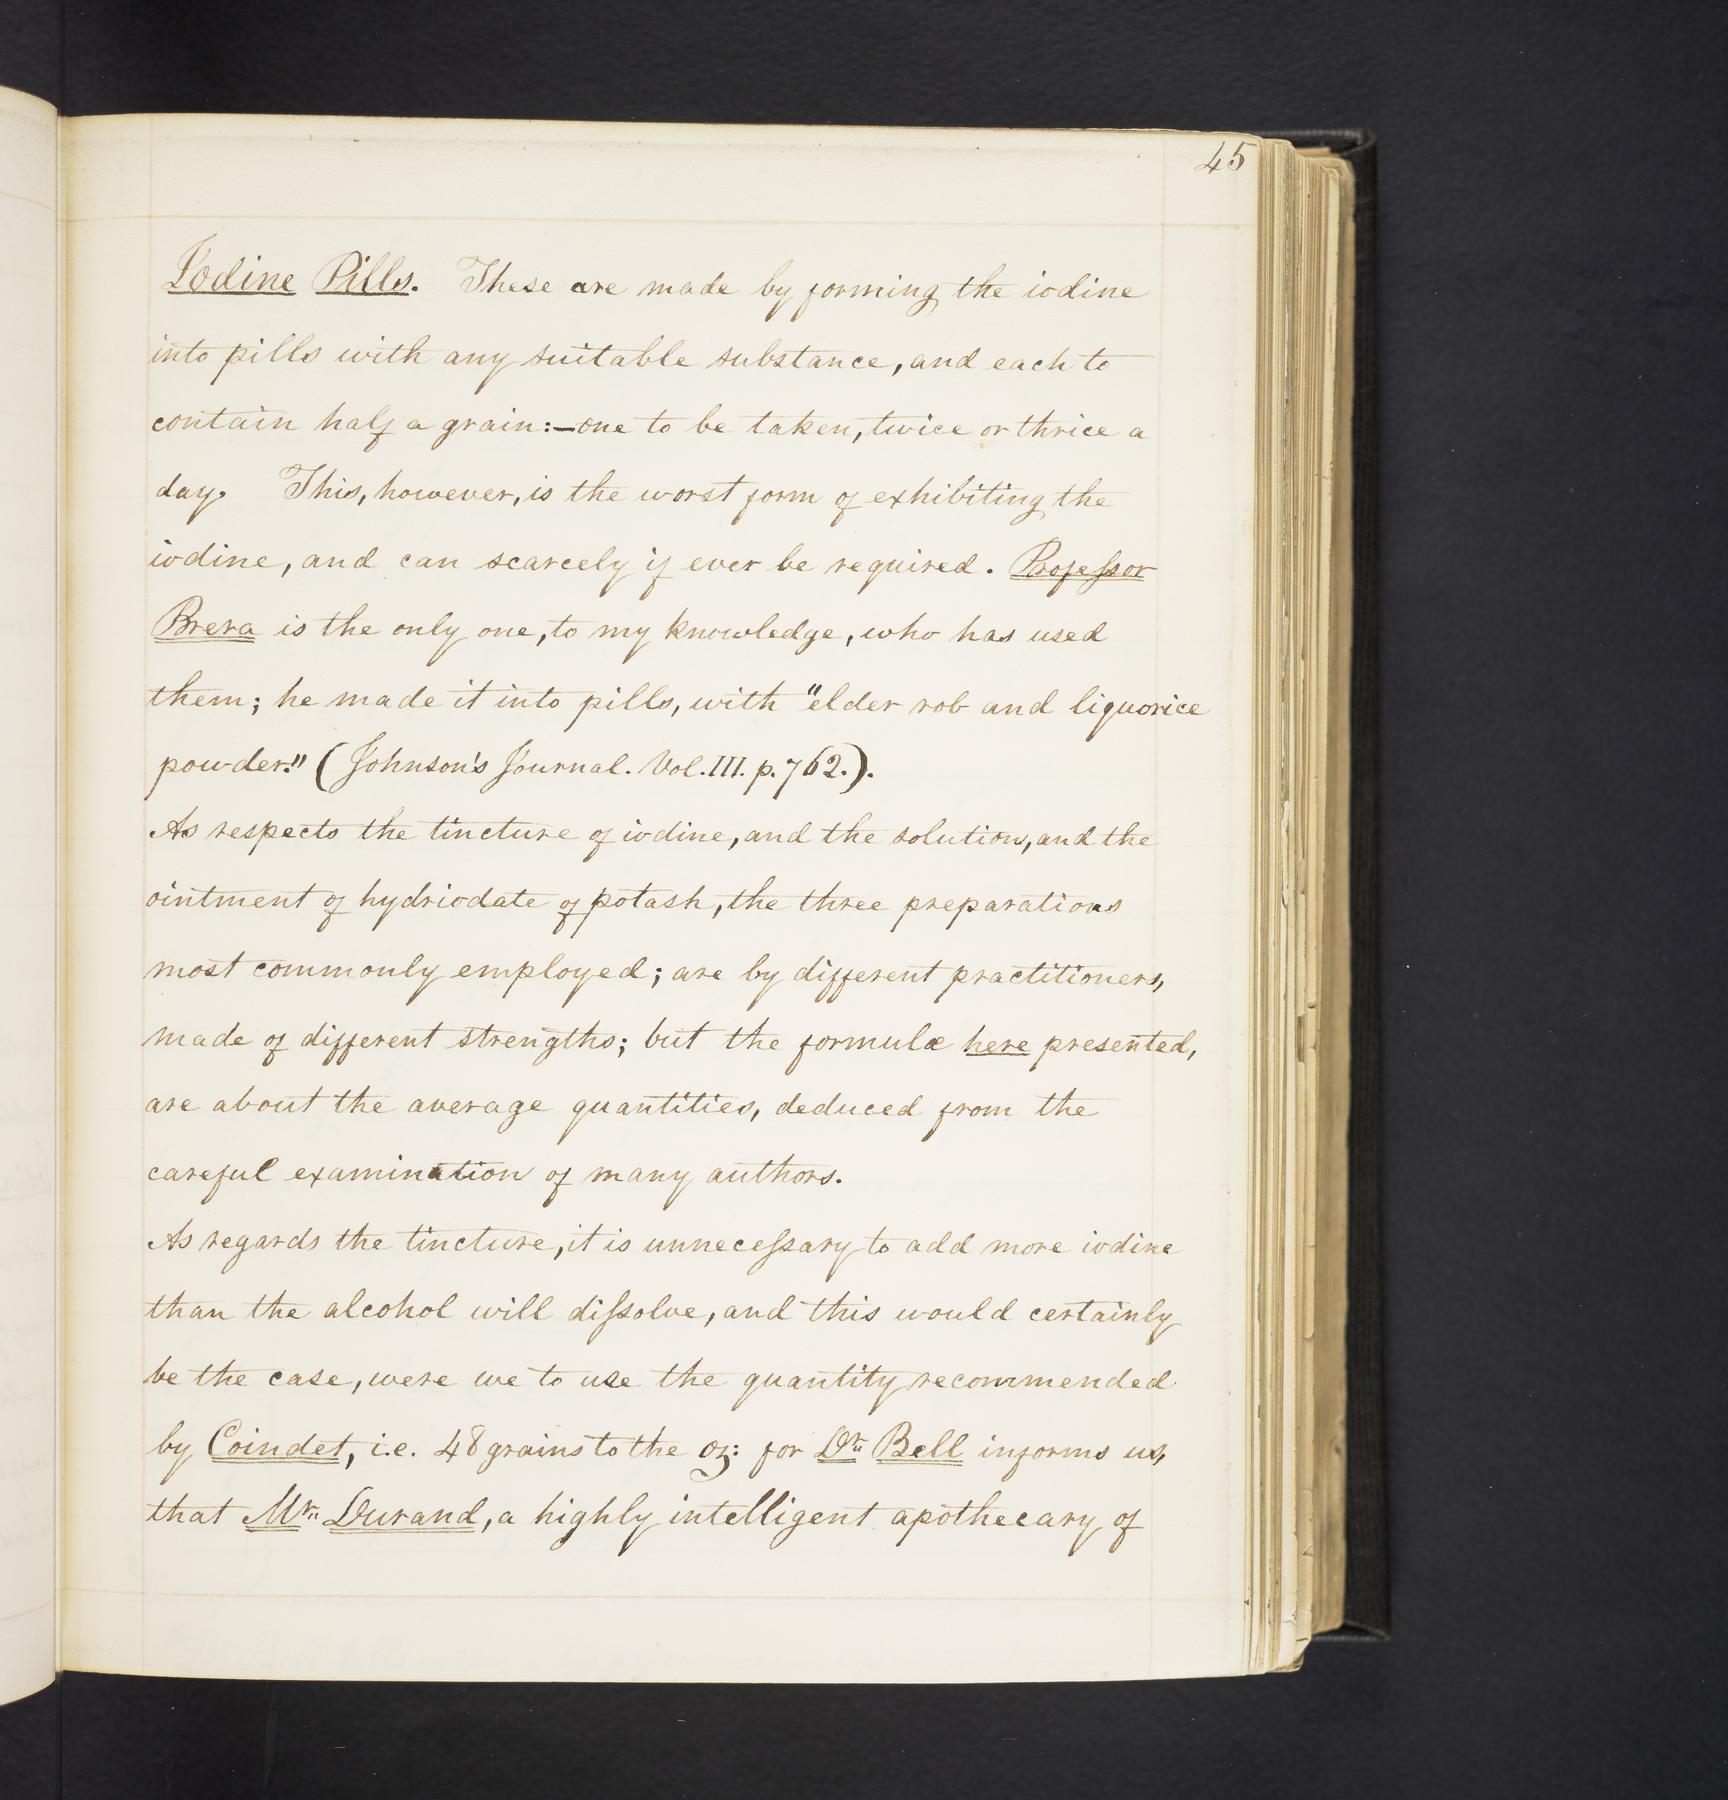 45
Iodine Pills. These are made by forming the iodine
into pills with any suitable substance, and each to
contain half a grain:—one to be taken, twice or thrice a
day. This, however, is the worst form of exhibiting the
iodine, and can scarcely if ever be required. Profeſsor
Brera is the only one, to my knowledge, who has used
them; he made it into pills, with "elder rob and liquorice
powder." (Johnson's Journal. Vol. III. p. 762.).
As respects the tincture of iodine, and the solution, and the
ointment of hydriodate of potash, the three preparations
most commonly employed; are by different practitioners,
made of different strengths; but the formulæ here presented,
are about the average quantities, deduced from the
careful examination of many authors.
As regards the tincture, it is unneceſsary to add more iodine
than the alcohol will diſsolve, and this would certainly
be the case, were we to use the quantity recommended
by Coindet, i.e. 48 grains to the oz: for Dr. Bell informs us,
that Mr. Durand, a highly intelligent apothecary of